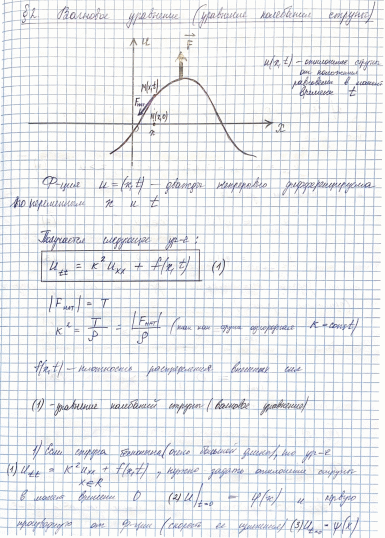 §2 Волновое уравнение (уравнение колебаний струны)
u
F
u(x,t) - отклонение струны
от положения
равновесия в момент
времени t
M(x,t)
Fнат
M(x,0)
x
x
Ф-ция u=(x,t) - дважды непрерывно дифференцируема
по переменным x и t
Получается следующее ур-е:
u_tt = k² u_xx + f(x,t) (1)
|Fнат| = T
k² = T/ρ = |Fнат|/ρ (так как струна однородная k=const)
f(x,t) - плотность распределения внешних сил
(1) - уравнение колебаний струны (волновое уравнение)
1) Если струна бесконечна (очень большой длины), то ур-е
(1) u_tt = k² u_xx + f(x,t), нужно задать отклонение струны
x∈R
в момент времени 0 (2) u|t=0 = φ(x) и первую
производную от ф-ции (скорость её движения) (3) u_t t=0 = ψ(x)